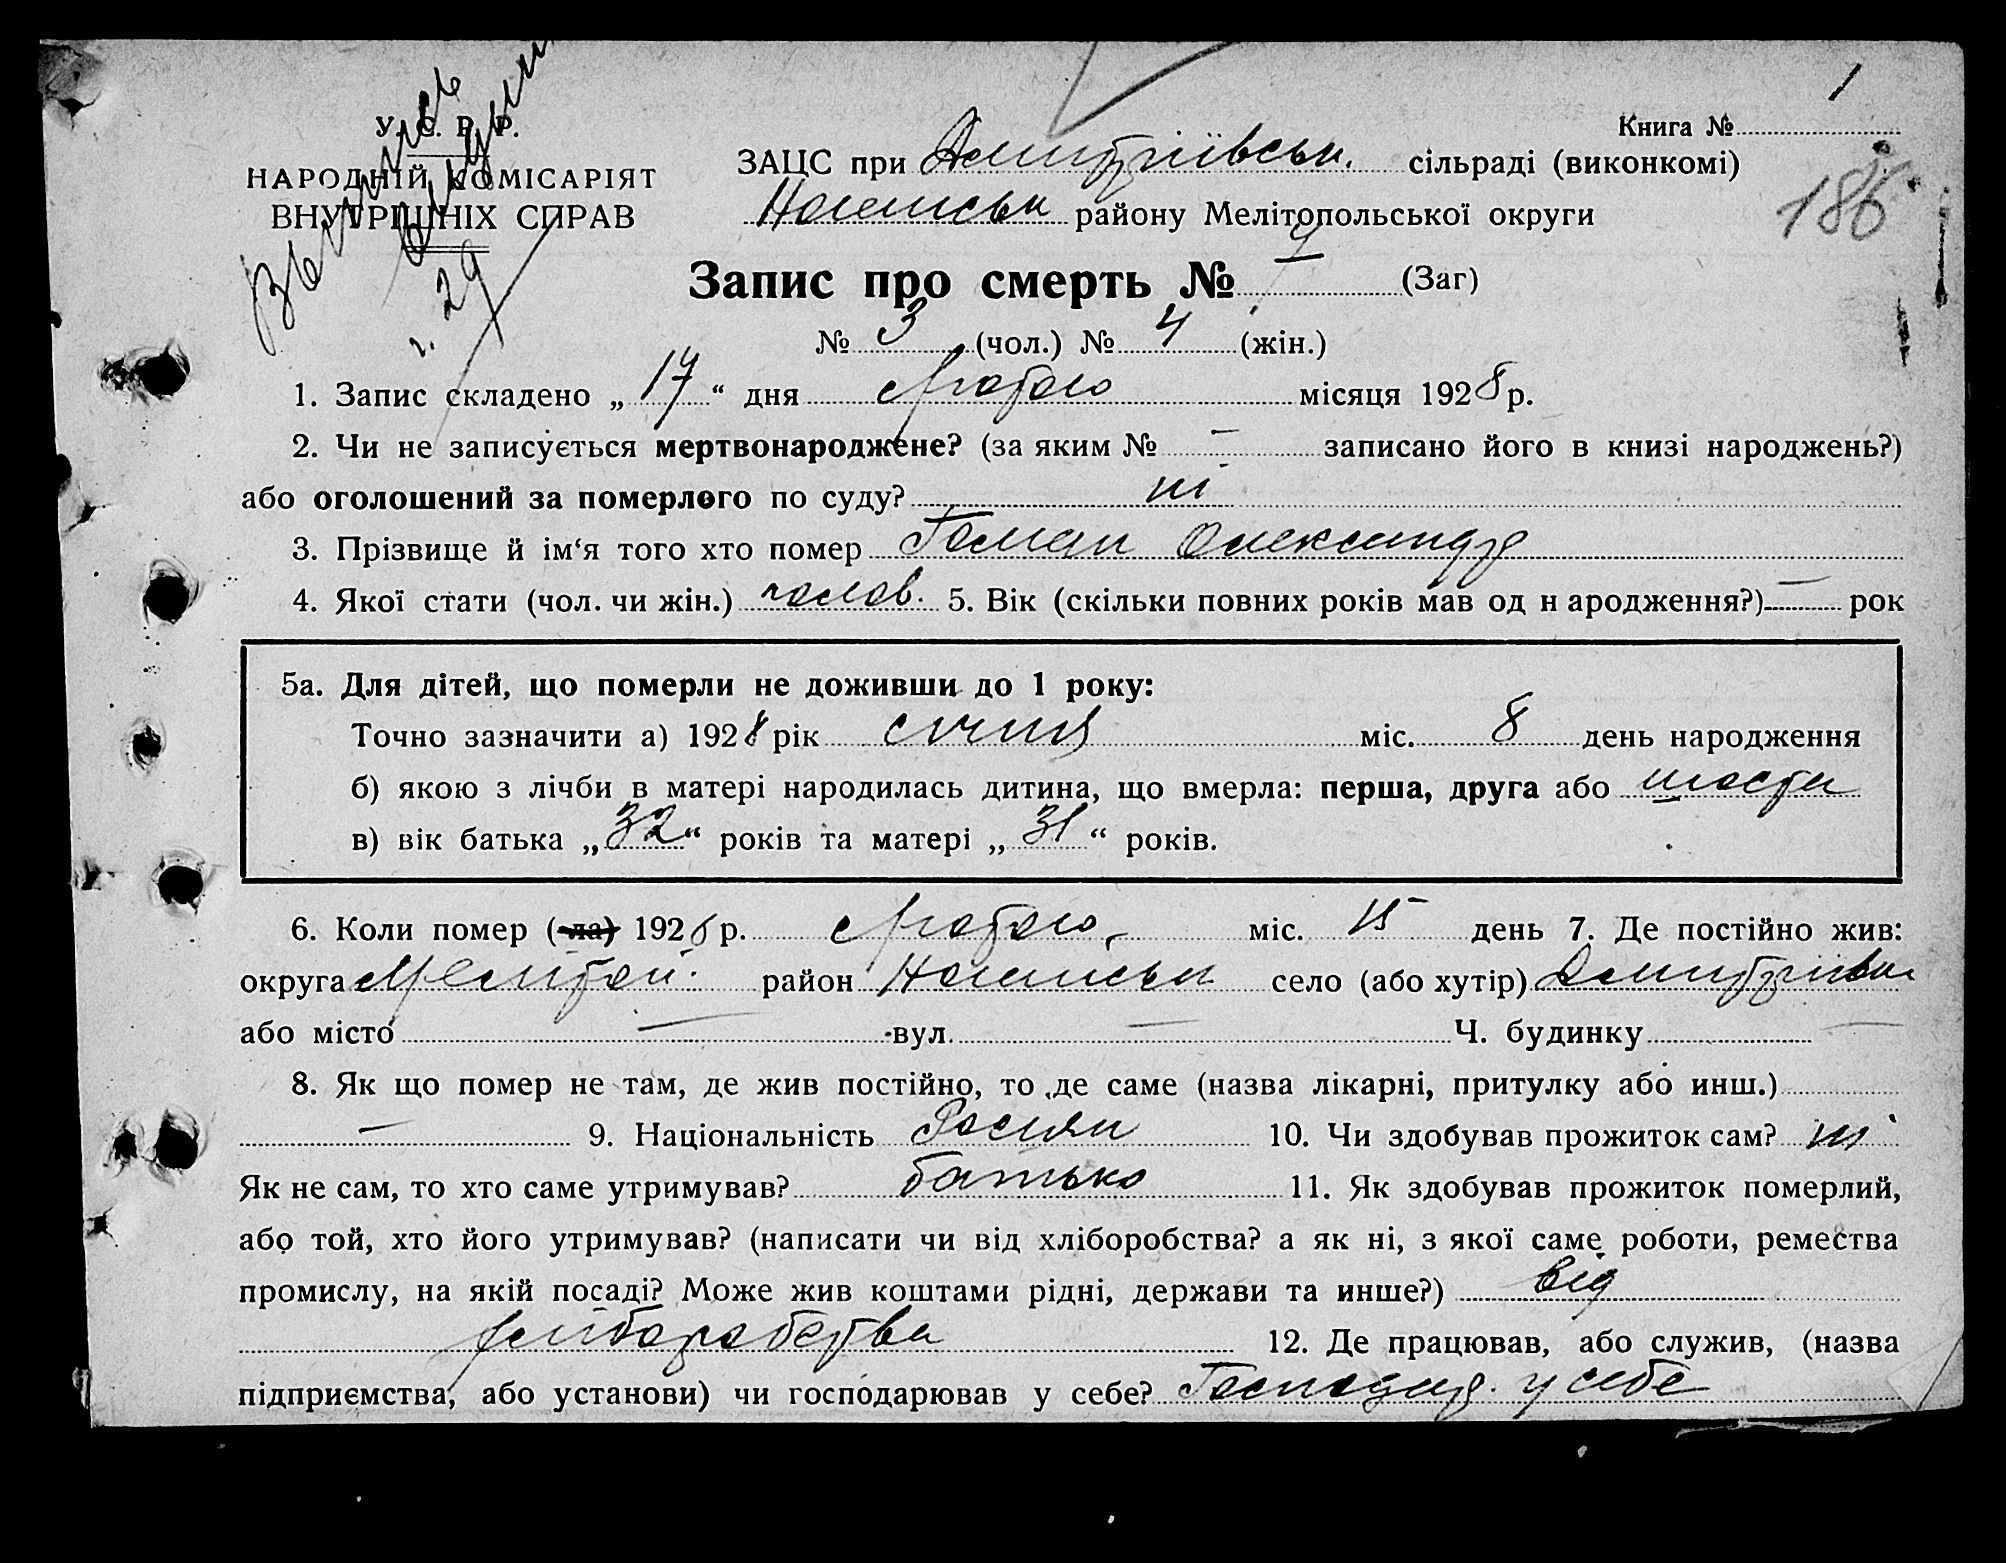 1
У. С. Р. Р.
НАРОДНІЙ КОМІСАРІЯТ
ВНУТРІШНІХ СПРАВ
г. 29
Книга №
ЗАЦС при Дмитріївськ. сільраді (виконкомі)
186
Ногайськ району Мелітопольської округи
Запис про смерть № 7 (Заг)
№ 3 (чол.) № 4 (жін.)
1. Запис складено „ 17 “ дня Лютого місяця 1928 р.
2. Чи не записується мертвонароджене? (за яким № — записано його в книзі народжень?)
або оголошений за померлого по суду? ні
3. Прізвище й ім‘я того хто помер Гоман Олександр
4. Якої стати (чол. чи жін.) чолов. 5. Вік (скільки повних років мав од н ародження?) — рок
5а. Для дітей, що померли не доживши до 1 року:
Точно зазначити а) 1928 рік січня міс. 8 день народження
б) якою з лічби в матері народилась дитина, що вмерла: перша, друга або шоста
в) вік батька „ 32 “ років та матері „ 31 “ років.
6. Коли помер (ла) 1928 р. Лютого міс. 15 день 7. Де постійно жив:
округа Мелітоп. район Ногайськ село (або хутір) Дмитрівка
або місто — вул. — Ч. будинку —
8. Як що помер не там, де жив постійно, то де саме (назва лікарні, притулку або инш.)
— 9. Національність Росіян 10. Чи здобував прожиток сам? ні
Як не сам, то хто саме утримував? батько 11. Як здобував прожиток померлий,
або той, хто його утримував? (написати чи від хліборобства? а як ні, з якої саме роботи, ремества
промислу, на якій посаді? Може жив коштами рідні, держави та инше?) від
хліборобства 12. Де працював, або служив, (назва
підприємства, або установи) чи господарював у себе? Господар. у себе